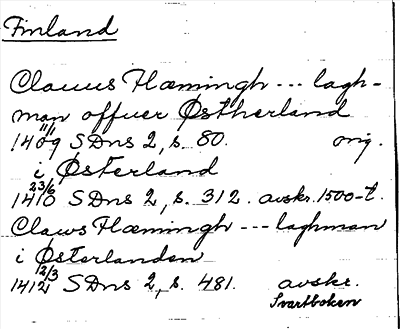 Finland
Clauus Flæmingh --- lagh-
man offuer Østherland
11/11
1409 SDns 2, s. 80. orig.
i Østerland
23/6
1410 SDns 2, s. 312. avskr. 1500-t.
Claws Flæmingh --- laghman
i Østerlanden
12/3
1412 SDns 2, s. 481. avskr.
Svartboken